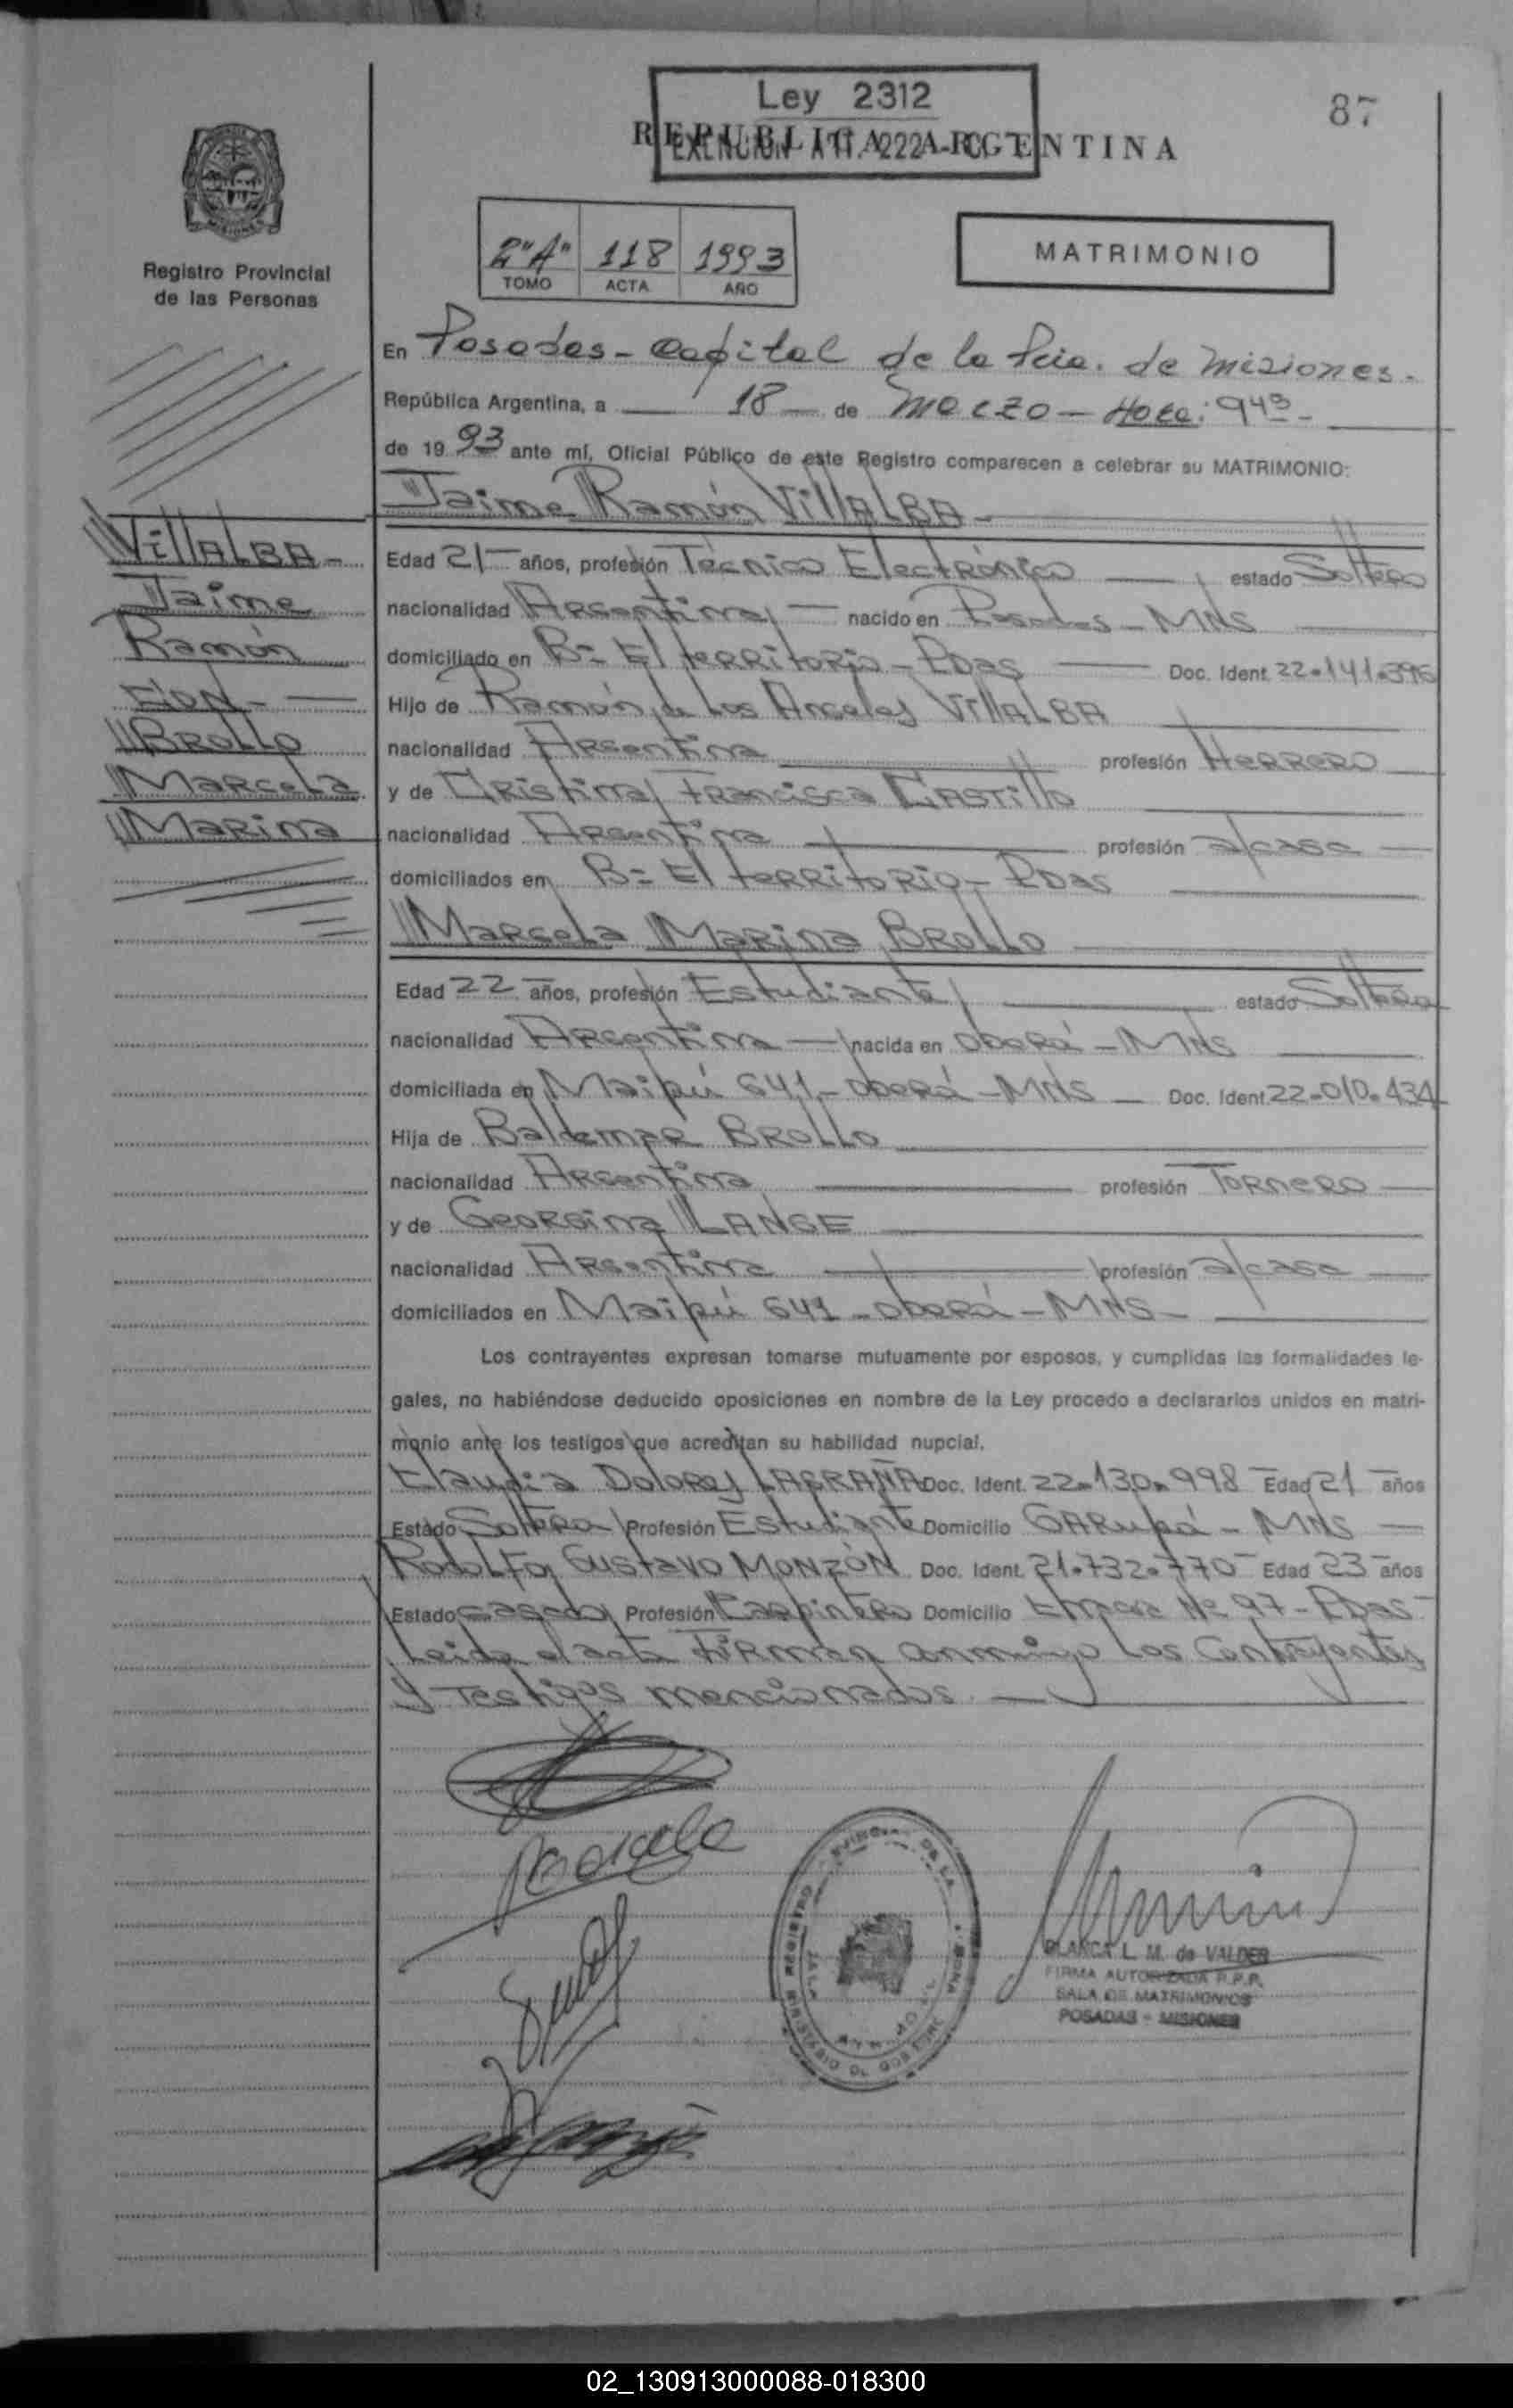 87
Ley 2312
REPUBLICA ARGENTINA
EXENCION ATT. 222
2"A" 118 1993
TOMO ACTA AÑO
MATRIMONIO
Registro Provincial
de las Personas
En Posadas - Capital de la Pcia. de Misiones.
República Argentina, a 18 de Marzo - Hora: 9 45 -
de 19 93 ante mí, Oficial Público de este Registro comparecen a celebrar su MATRIMONIO:
Jaime Ramón VillALBA -
VillALBA -
Jaime
Ramón
CON -
BROLLO
MARCELA
MARINA
Edad 21 años, profesión Técnico Electrónico estado Soltero
nacionalidad Argentina nacido en Posadas - MNS
domiciliado en B= El territorio - Pdas Doc. Ident. 22.141.396
Hijo de Ramón de Los Angeles VillALBA
nacionalidad Argentina profesión Herrero
y de Cristina Francisca CASTillo
nacionalidad Argentina profesión a/casa
domiciliados en B= El territorio - Pdas
Marcela Marina BROLLO
Edad 22 años, profesión Estudiante estado Soltera
nacionalidad Argentina nacida en Oberá - MNS
domiciliada en Maipú 641 - Oberá - MNS - Doc. Ident. 22.010.434
Hija de Baldemar BROLLO
nacionalidad Argentina profesión Tornero
y de Georgina LANGE
nacionalidad Argentina profesión a/casa
domiciliados en Maipú 641 - Oberá - MNS -
Los contrayentes expresan tomarse mutuamente por esposos, y cumplidas las formalidades le-
gales, no habiéndose deducido oposiciones en nombre de la Ley procedo a declararlos unidos en matri-
monio ante los testigos que acreditan su habilidad nupcial.
Claudia Dolores LAGRAÑA Doc. Ident. 22.130.998 Edad 21 años
Estado Soltera Profesión Estudiante Domicilio GARupá - MNS
Rodolfo Gustavo MONZÓN Doc. Ident. 21.732.770 Edad 23 años
Estado casado Profesión Carpintero Domicilio Nº 97 - Pdas
Leida el acta firman conmigo los Contrayentes
y Testigos mencionados.
BLANCA L. M. de VALDER
FIRMA AUTORIZADA R.P.P.
SALA DE MATRIMONIOS
POSADAS - MISIONES
02_130913000088-018300